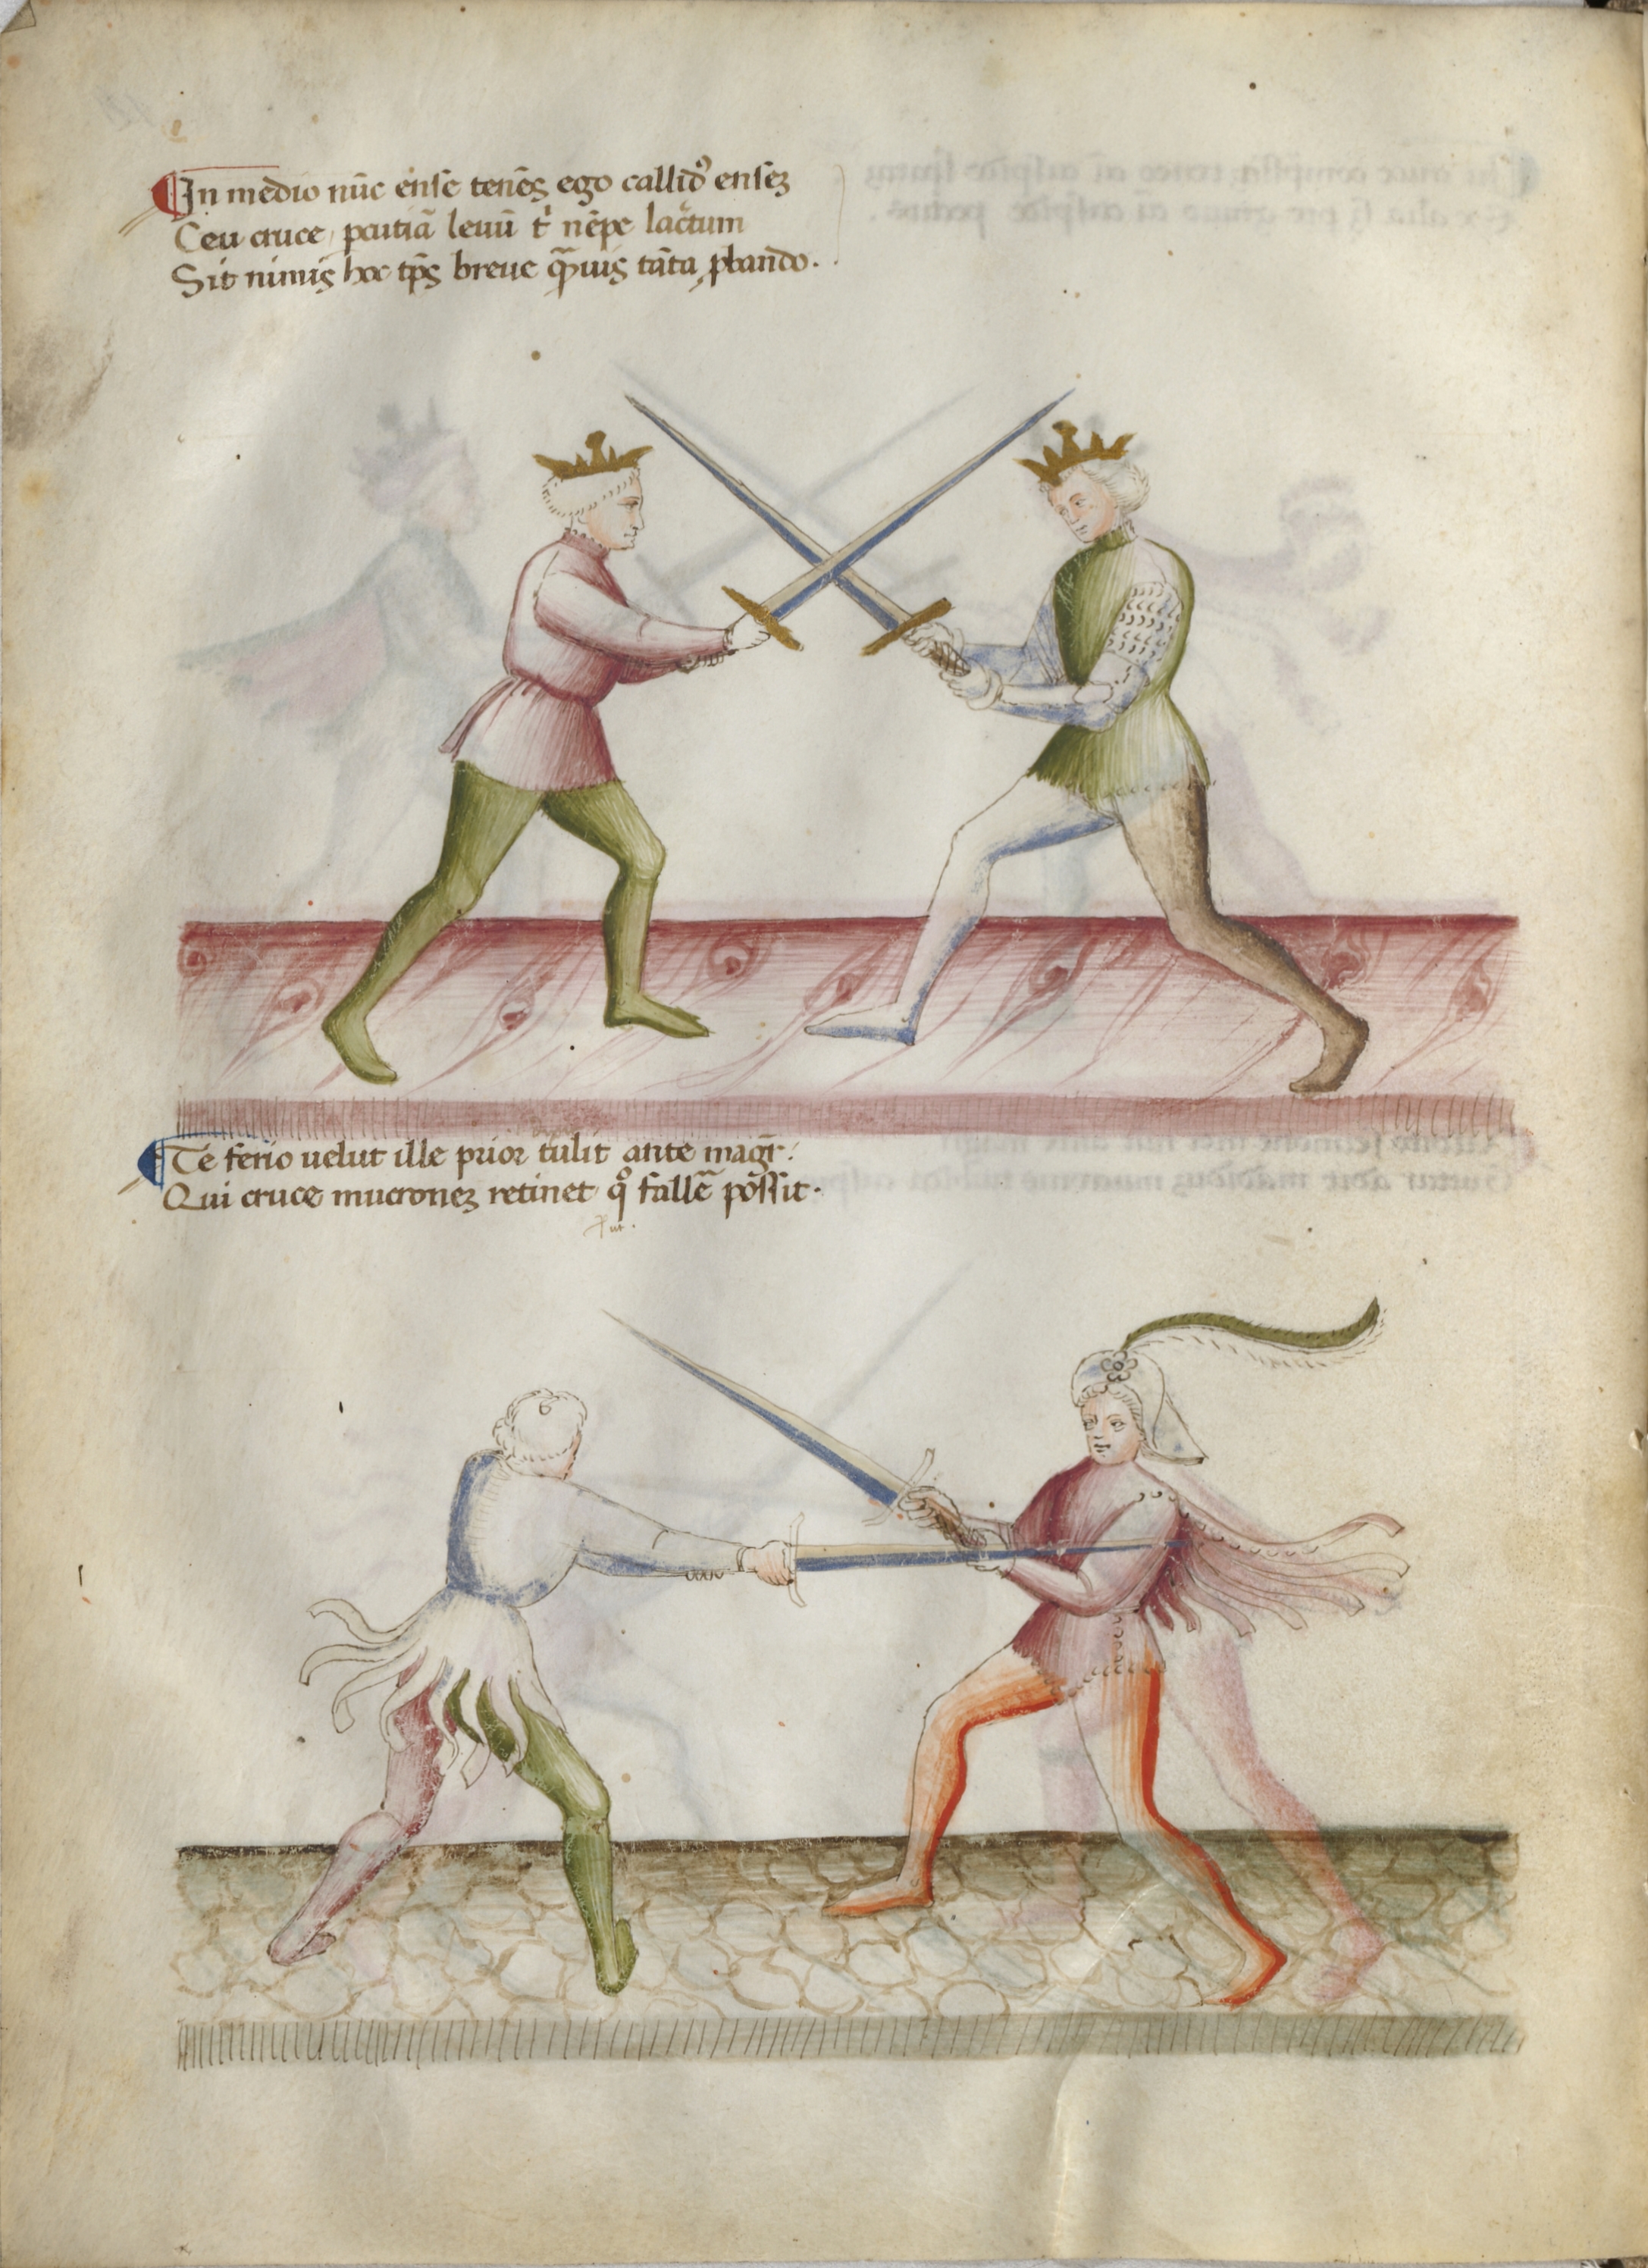 In medio nūc ense tenēs ego callidꝰ ensez
Ceu cruce, pcutiā leuū t nēpe lac̄tum
Sit nimis hoc tp̄s breue q̄uis tāta ꝓbando.
Te ferio uelut ille prior tulit ante magr̄.
Qui cruce mucronez retinet qͦ fallē possit.